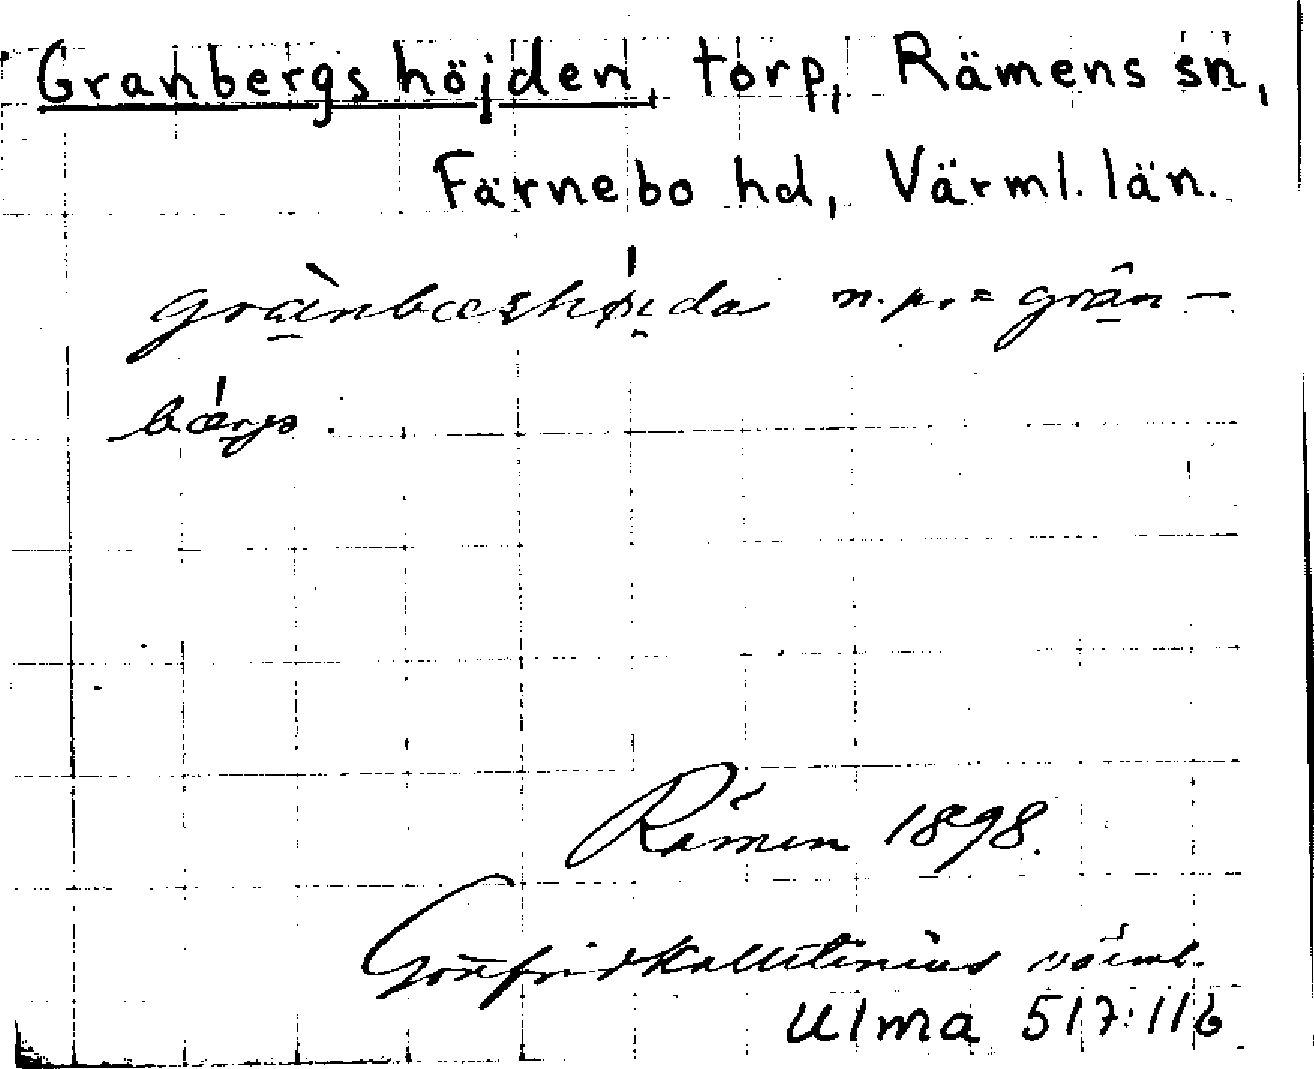 Granbergshöjden, torp, Rämens sn,
Färnebo hd, Värml. län.
n. pr. = grân –
bærjə.
Rämen 1898.
Gottfrid Kallstenius värml.
Ulma 517:116